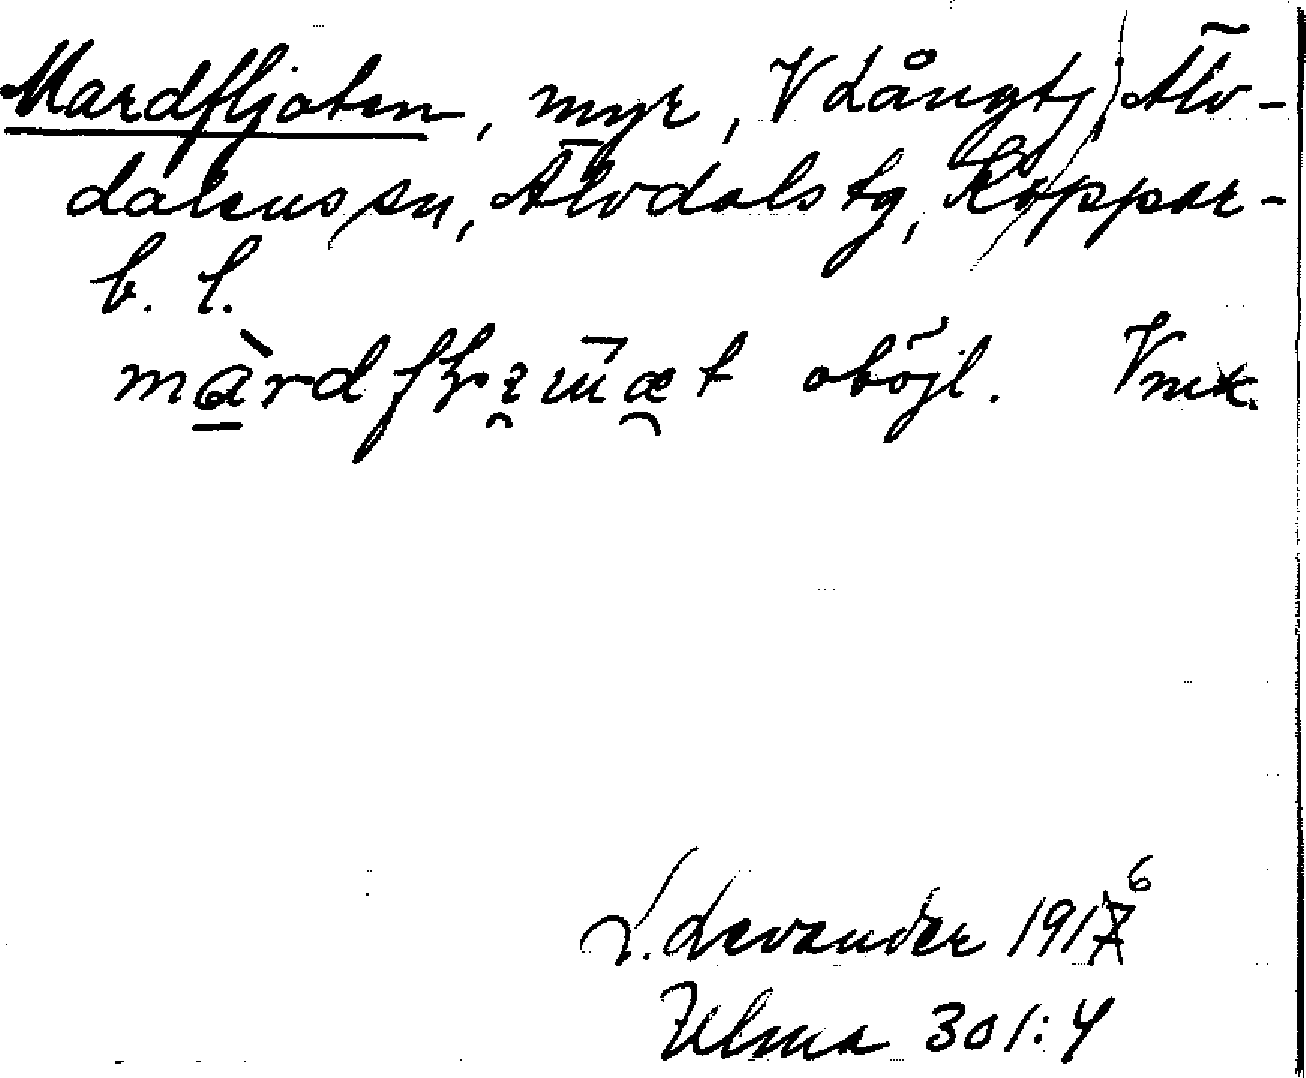 Mardfljoten, myr, V Långtj Älv-
dalens sn, Älvdals tg, Koppar-
b. l.
oböjl. Vmk.
L. Levander 1916
Ulma 301:4